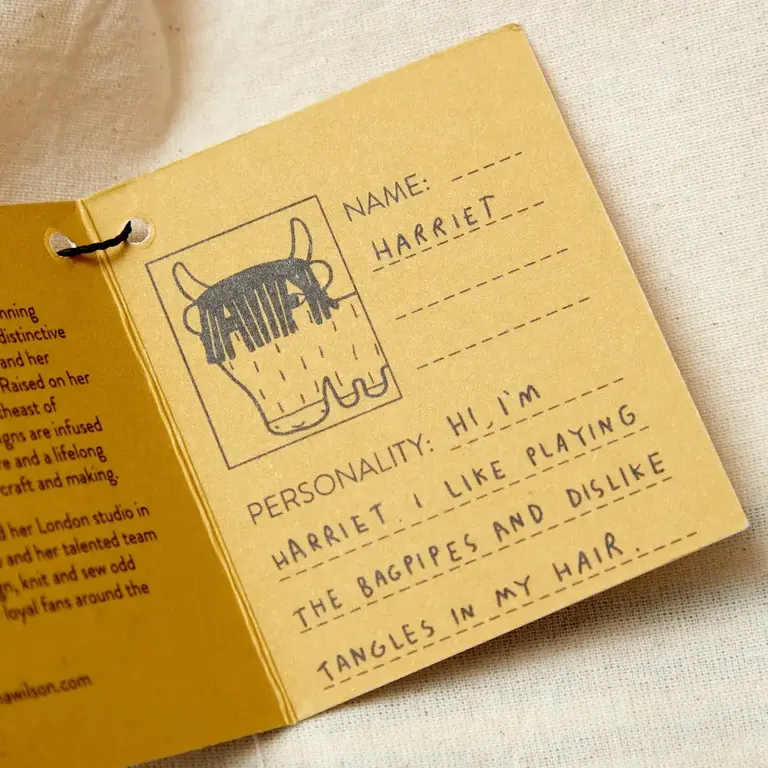 nning
distinctive
and her
Raised on her
theast of
igns are infused
re and a lifelong
craft and making.
d her London studio in
and her talented team
gn, knit and sew odd
loyal fans around the
awilson.com
NAME:
HARRIET
PERSONALITY: HI, I'M
HARRIET. I LIKE PLAYING
THE BAGPIPES AND DISLIKE
TANGLES IN MY HAIR.